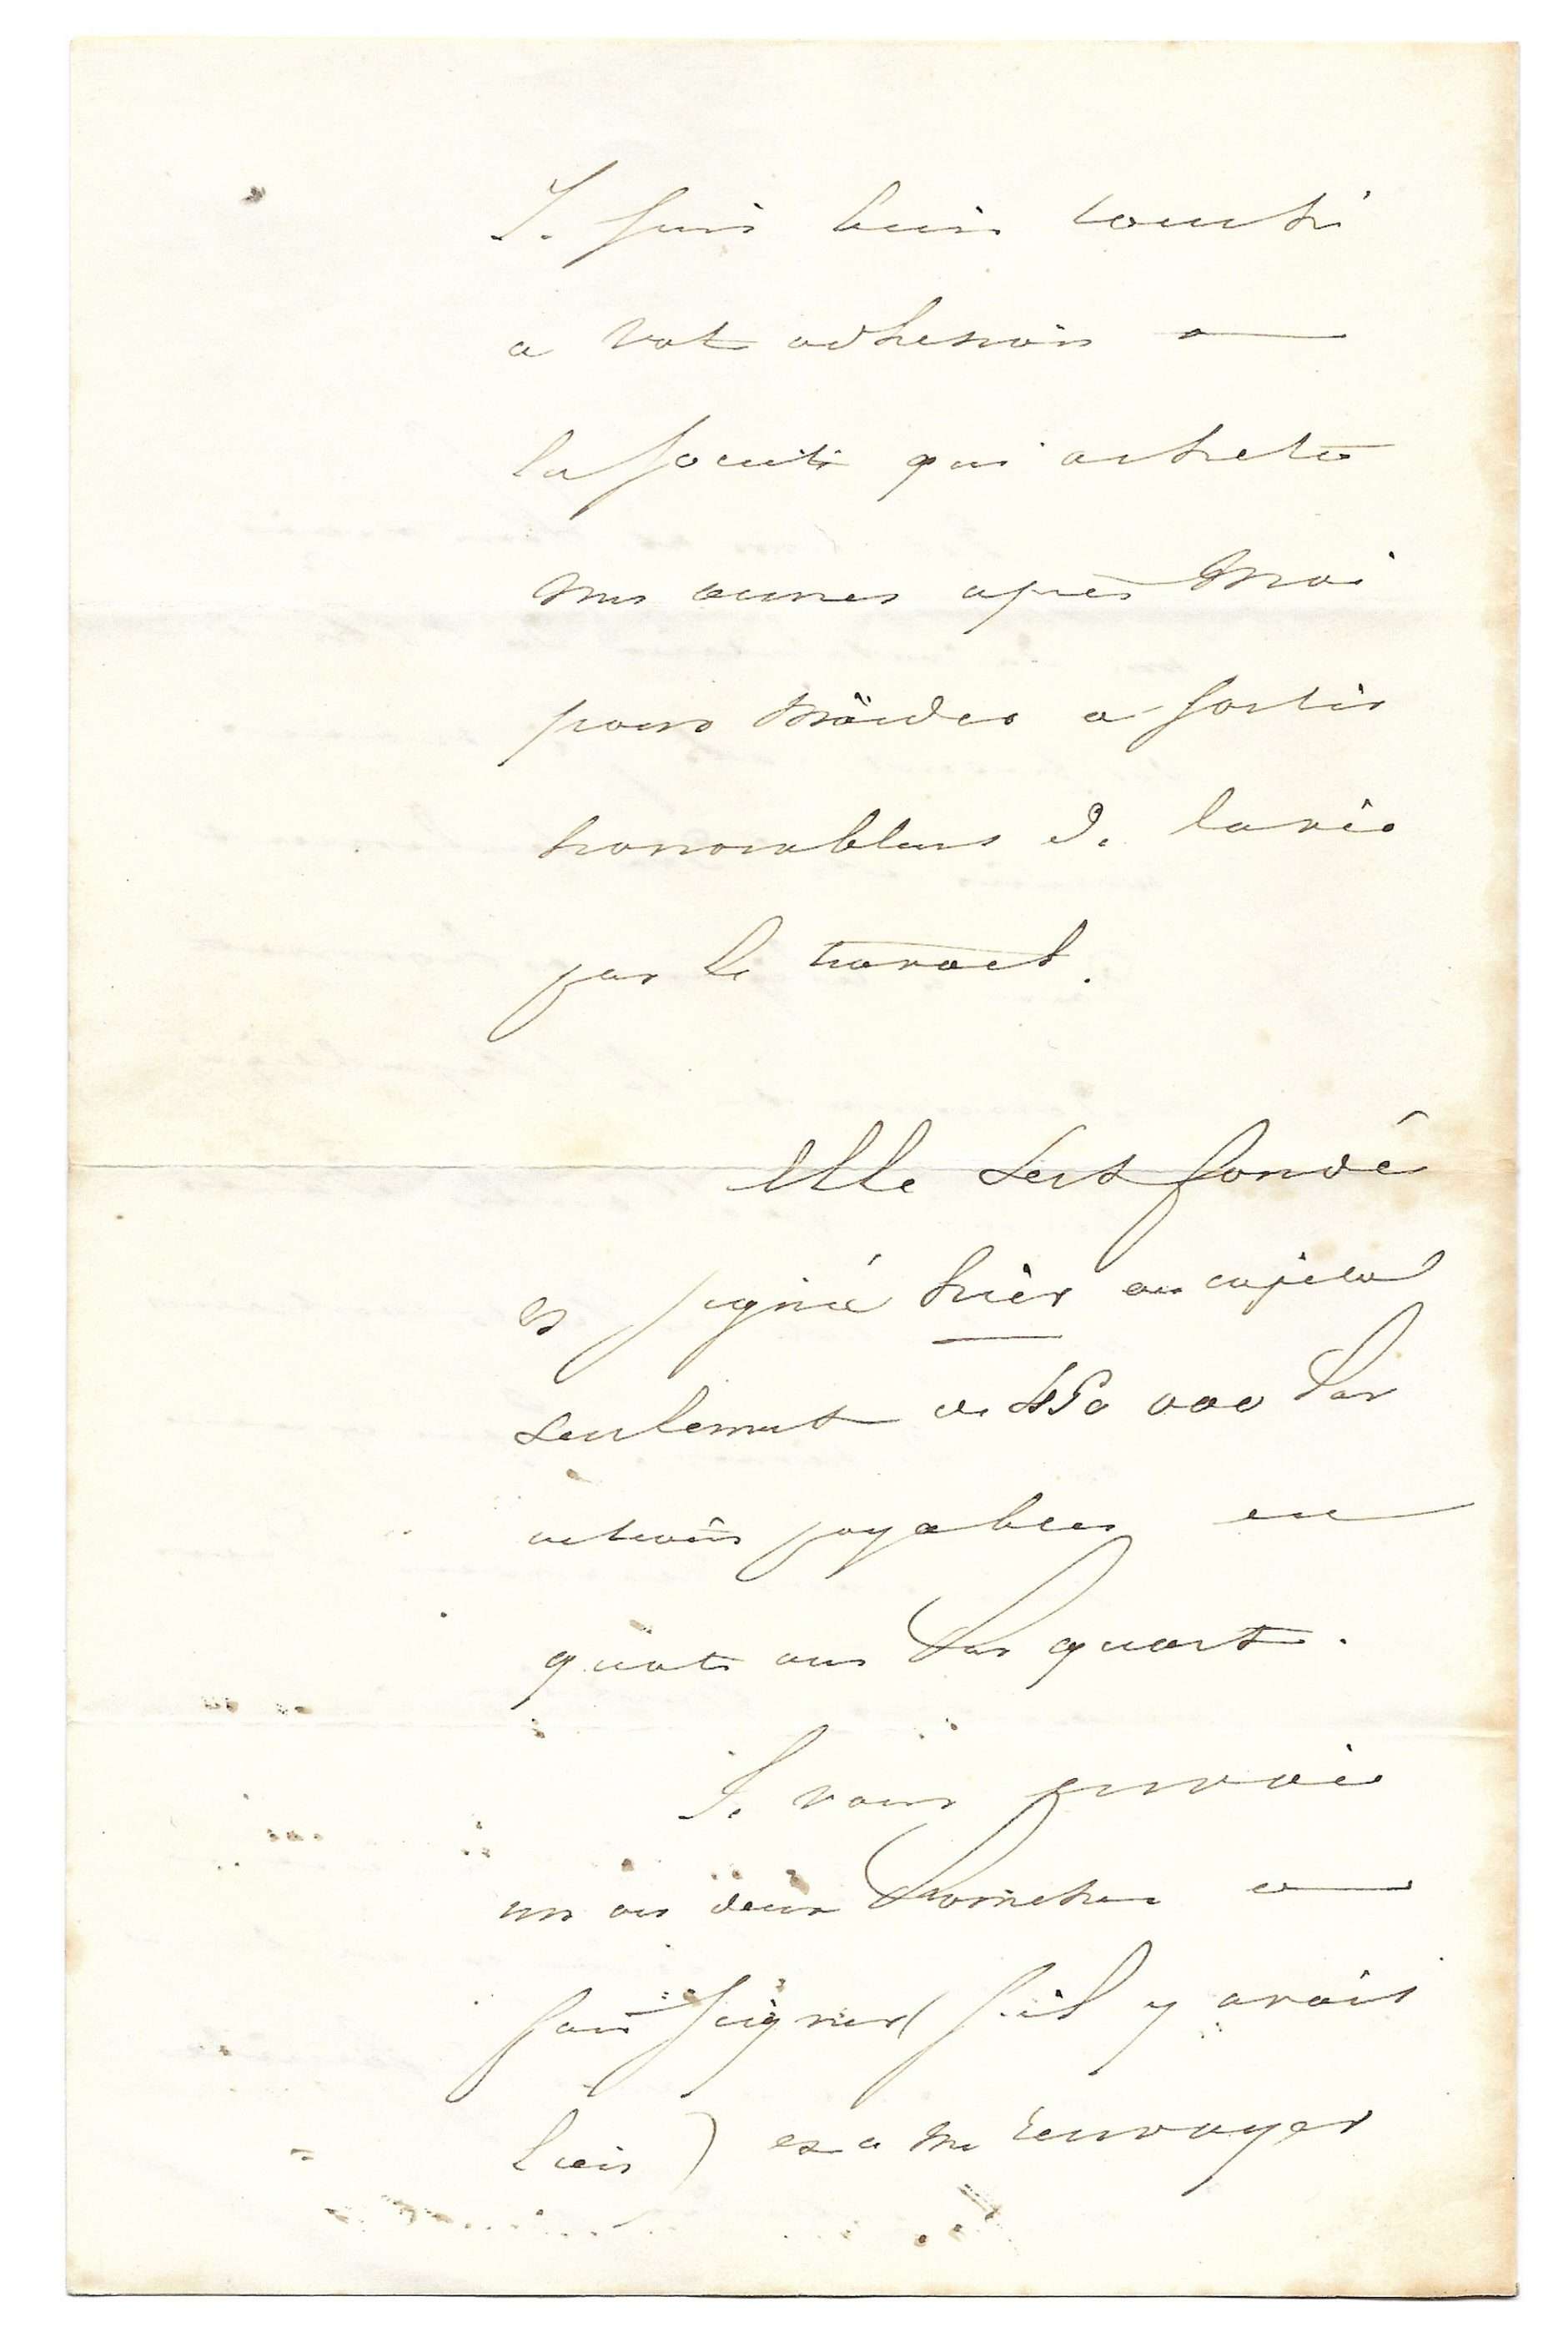 Je suis bien touché
a votre adhesion a
la societé qui achete
mes œuvres apres moi
pour m'aider a sortir
honorablement de la vie
par le travail.
Elle sest fondé
et signée hier au capital
seulement de 450 000 par
actions payables en
quatre ans par quart.
Je vous envoie
un ou deux a
faire signer (s'il y avait
lieu) et a me renvoyer